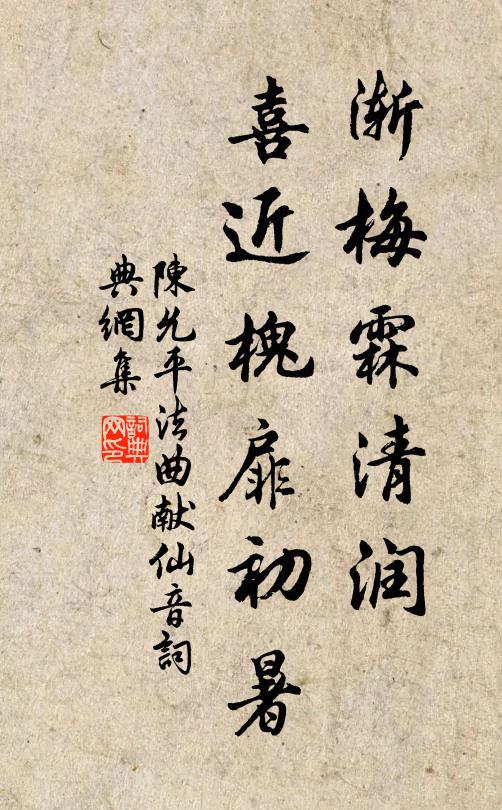 渐梅霖清润
喜近槐扉初暑
陳允平法曲献仙音詞
典網集
詞典网印